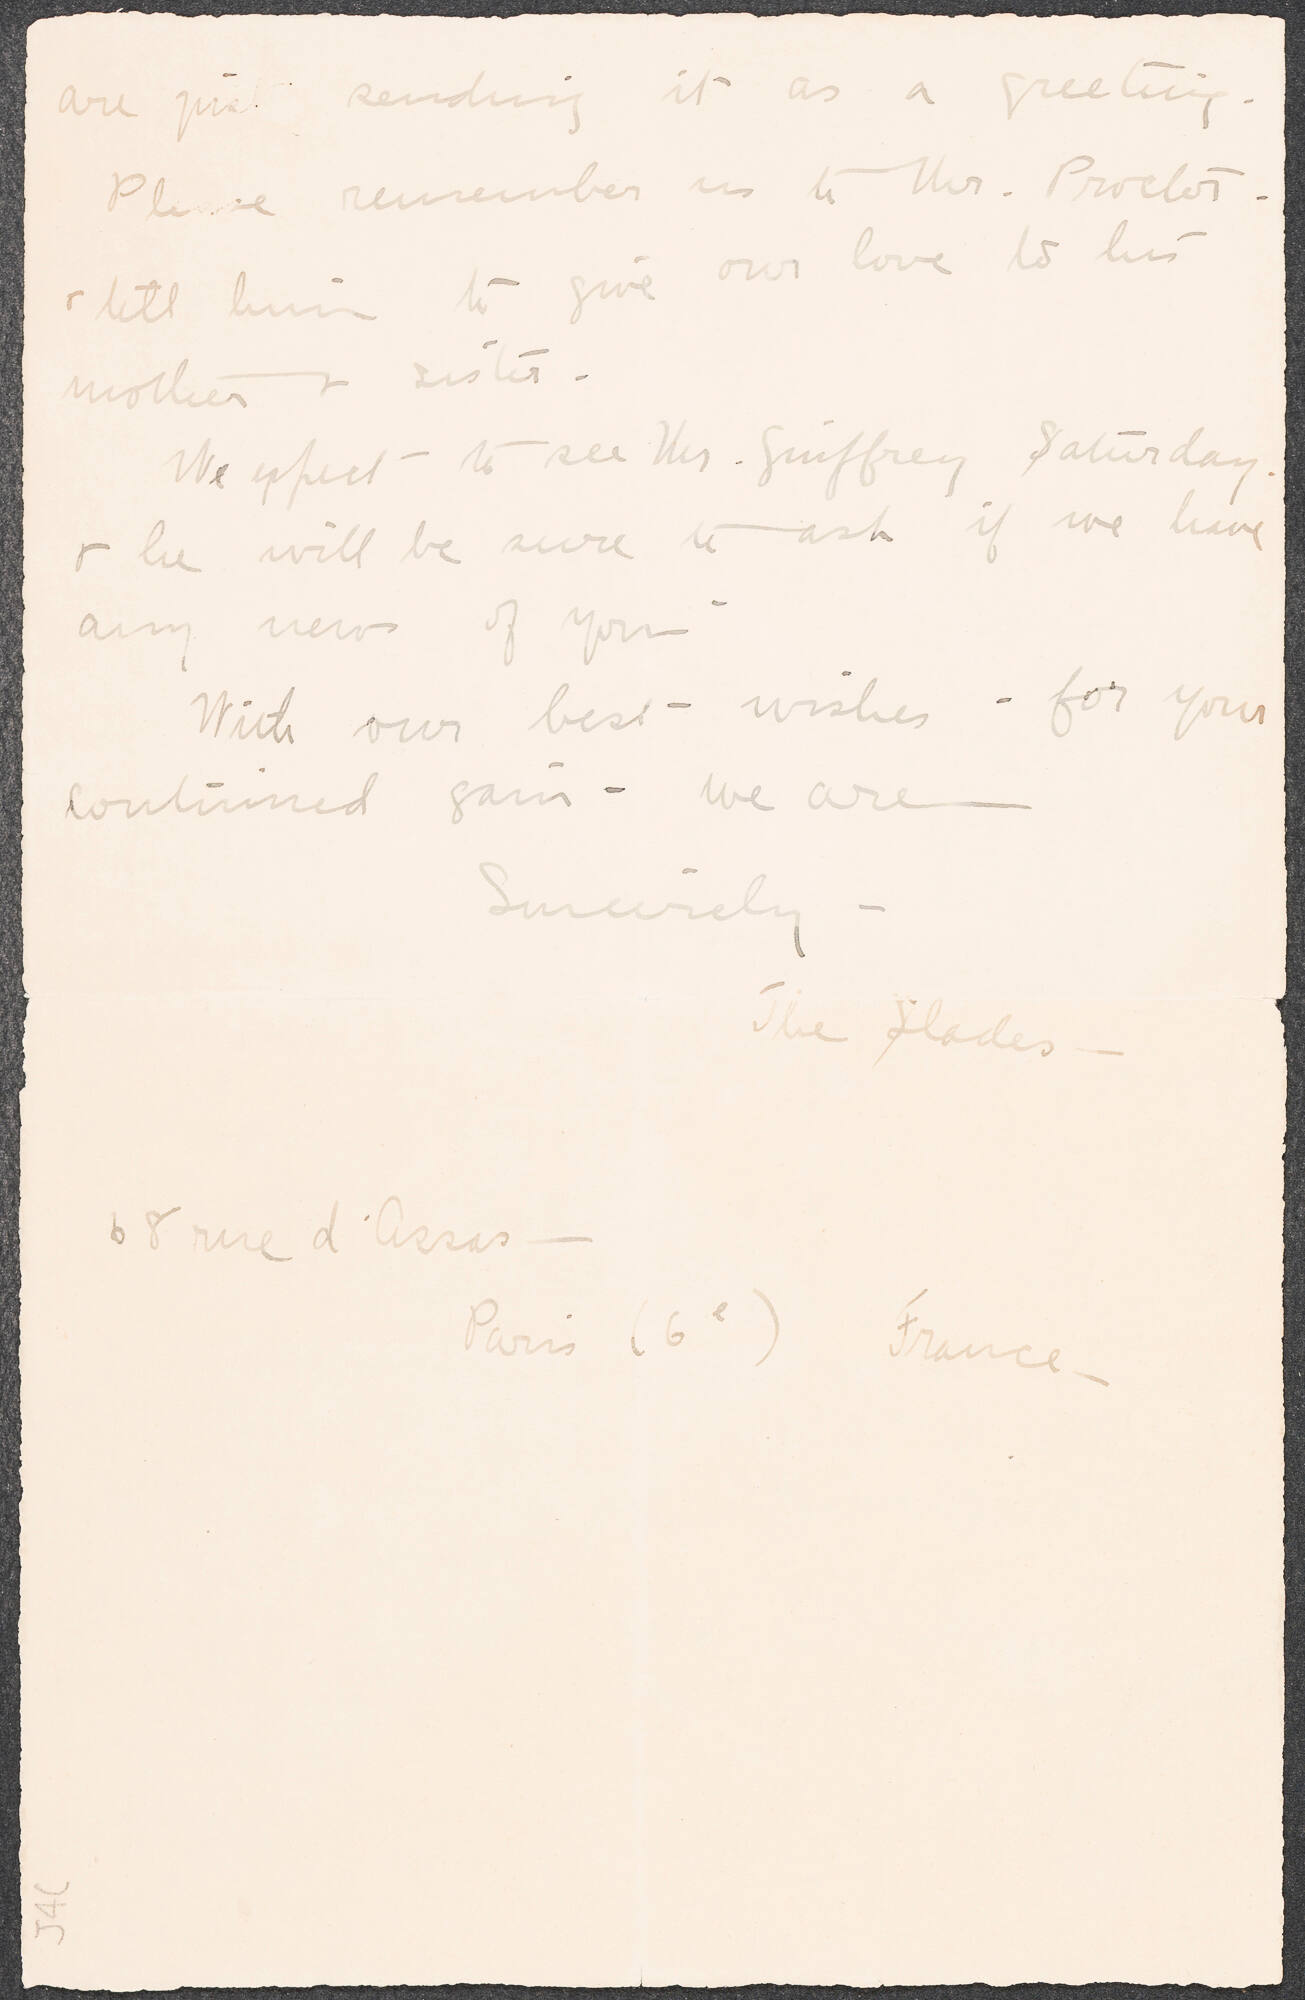 are just sending it as a greeting.
Please remember us to Mr. Proctor -
& tell him to give our love to his
mother & sister -
We expect to see Mr. Guiffrey Saturday.
& he will be sure to ask if we have
any news of you -
With our best - wishes - for your
continued gain - we are —
Sincerely -
The Slades —
68 rue d'Assas —
Paris (6e) France -